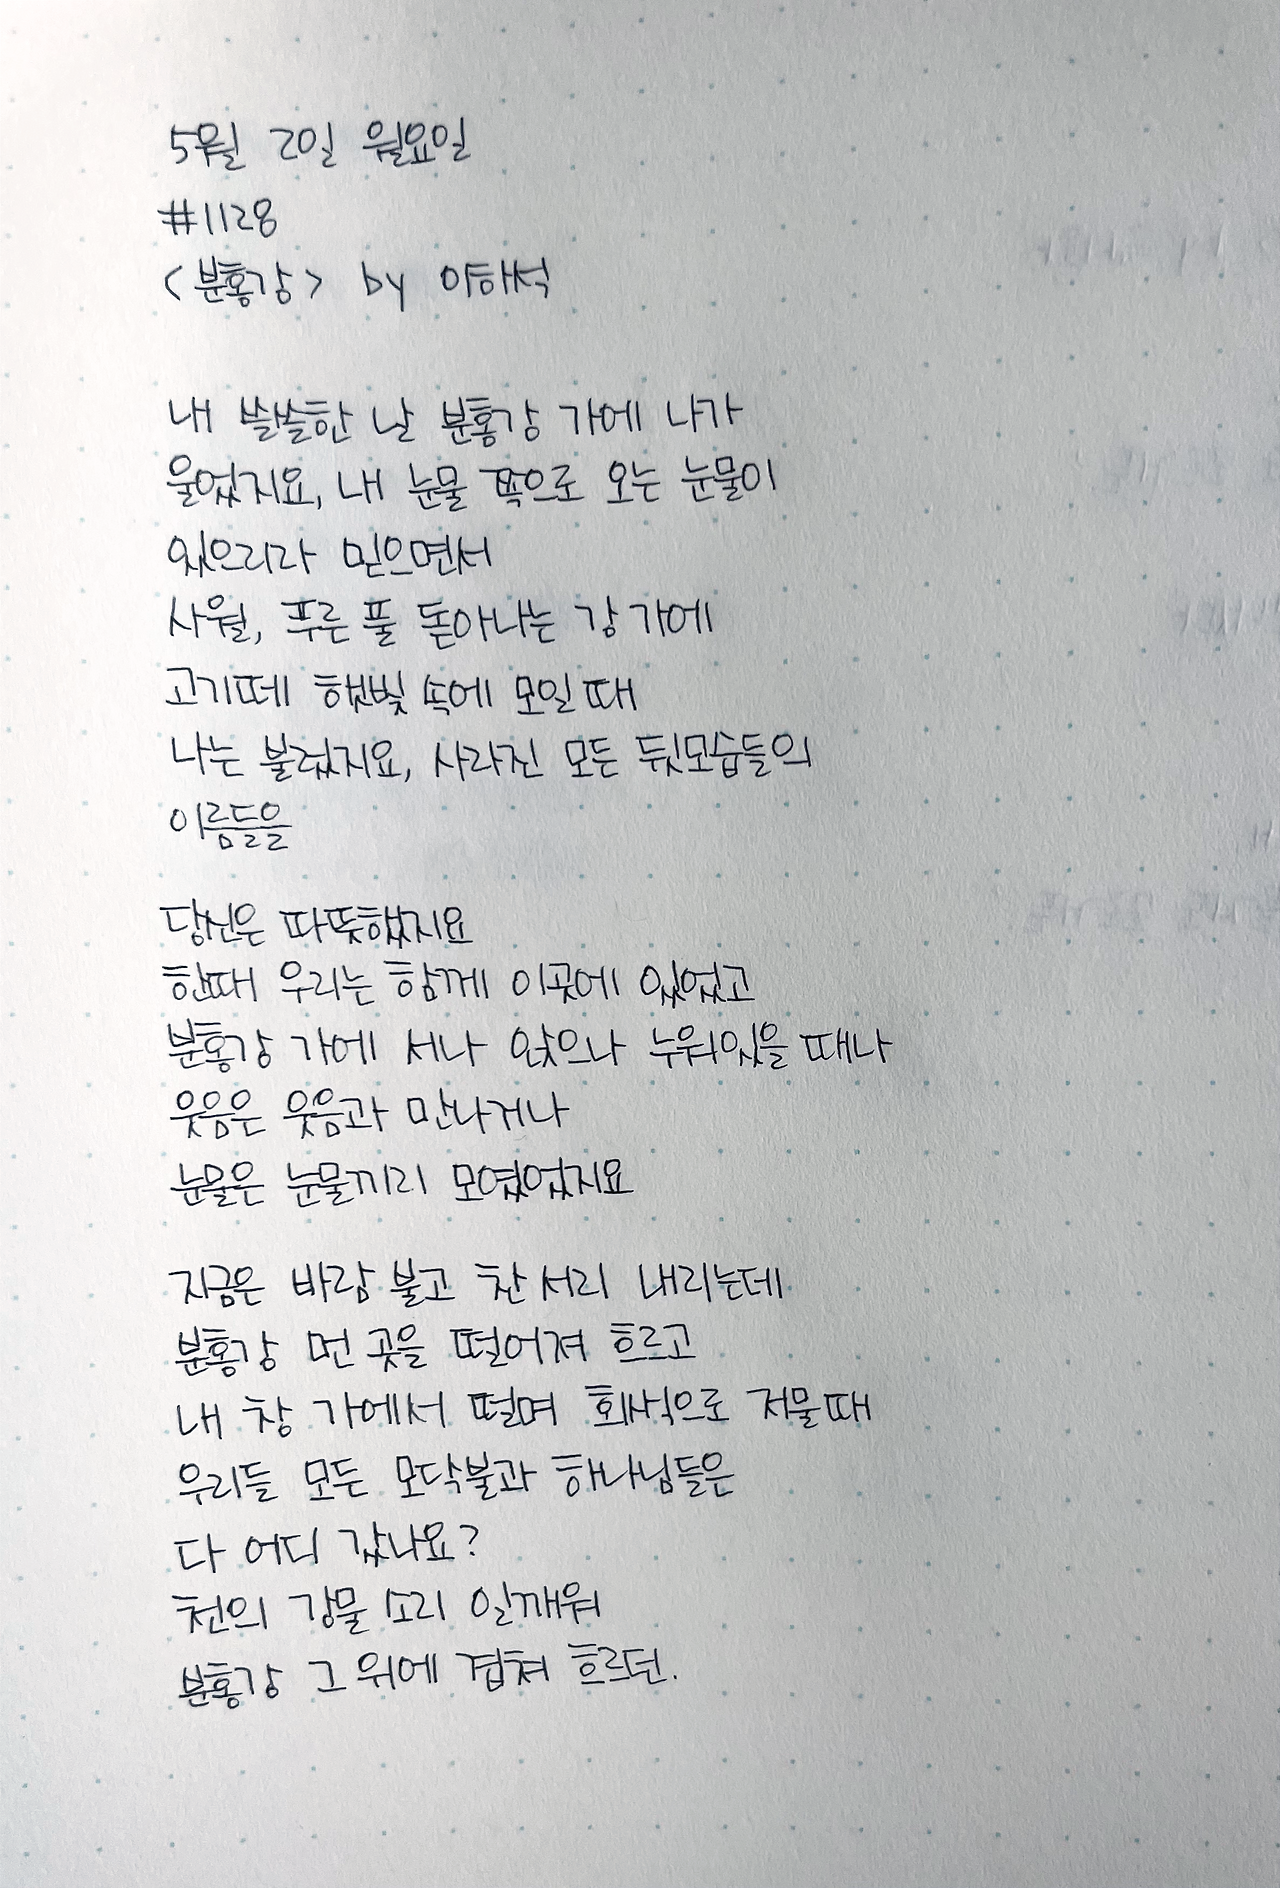 5월 20일 월요일
#1128
<분홍강> by 이하석
내 쓸쓸한 날 분홍강 가에 나가
울었지요, 내 눈물 쪽으로 오는 눈물이
있으리라 믿으면서
사월, 푸른 풀 돋아나는 강 가에
고기떼 햇빛 속에 모일 때
나는 불렀지요, 사라진 모든 뒷모습들의
이름들을
당신은 따뜻했지요
한때 우리는 함께 이곳에 있었고
분홍강 가에 서나 앉으나 누워있을 때나
웃음은 웃음과 만나거나
눈물은 눈물끼리 모였었지요
지금은 바람 불고 찬 서리 내리는데
분홍강 먼 곳을 떨어져 흐르고
내 창 가에서 떨며 회색으로 저물 때
우리들 모든 모닥불과 하나님들은
다 어디 갔나요?
천의 강물 소리 일깨워
분홍강 그 위에 겹쳐 흐르던.